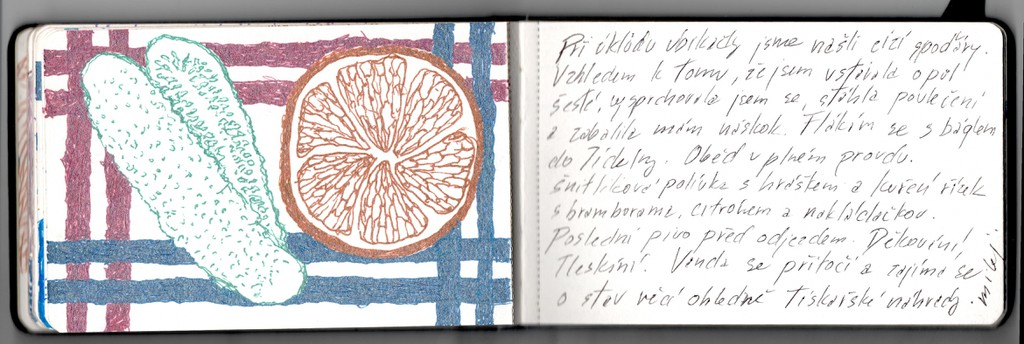 Při úklidu ubikady jsme našli cizí spodáry.
Vzhledem k tomu, že jsem vstávala o půl
šesté, vysprchovala jsem se, stáhla povlečení
a zabalila mám náskok. Flákím se s báglem
do Jídelny. Oběd v plném proudu.
Šnitlíková polívka s hráškem a kuřecí řízek
s bramborama, citronem a nakládačkou.
Poslední pivo před odjezdem. Děkování!
Tleskání. Vanda se přitočí a zajímá se
o stav věcí ohledně tiskařské náhrady.